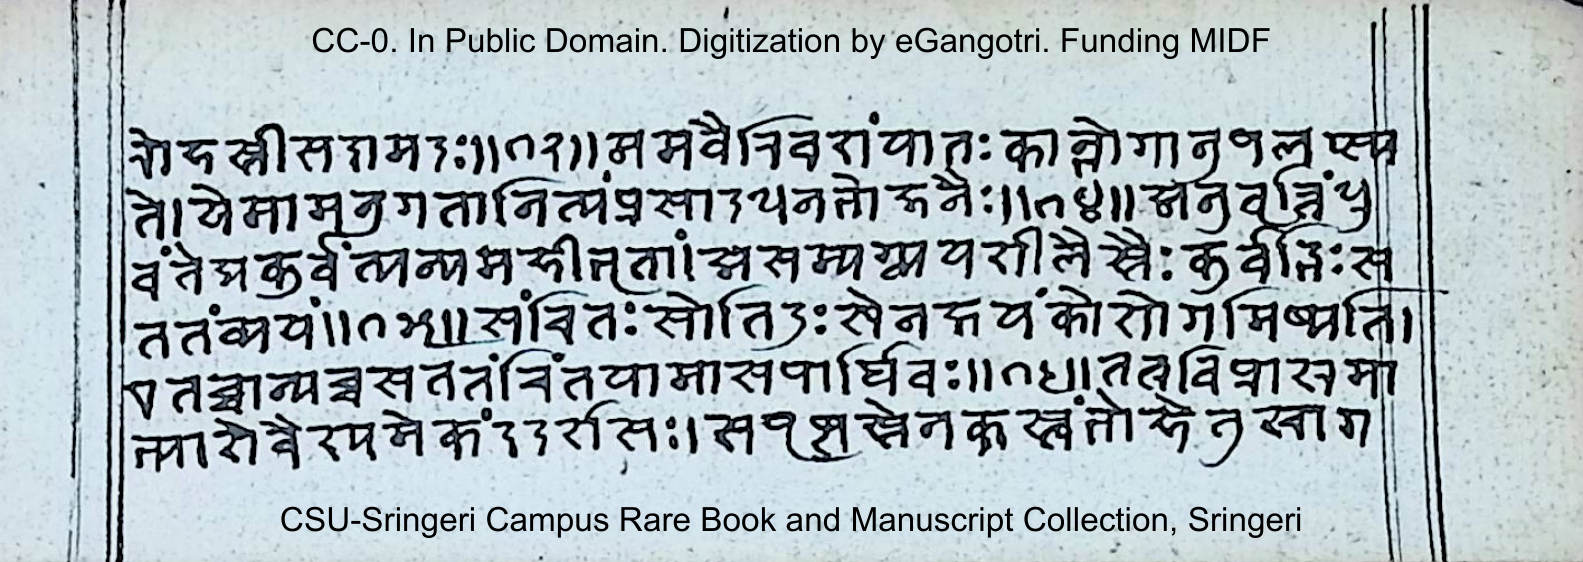 CC-0. In Public Domain. Digitization by eGangotri. Funding MIDF
रोहस्तीसदामदः॥१३॥ममवैरिवशंयातःकान्भोगानुपलप्स्य
ते।येमामनुगतानित्यंप्रसादधनभोजनैः॥१४॥अनुवृत्तिंध्रु
वंतेद्यकुर्वंत्यन्यमहीभृतां।असम्यग्व्ययशीलैस्तैःकुर्वद्भिःस
ततंव्ययं॥१५॥संचितःसोतिदुःखेनक्षयंकोशोगमिष्यति।
एतच्चान्यच्चसततंचिंतयामासपार्थिवः॥१६॥तत्रविप्राश्रमा
भ्याशेवैश्यमेकंददर्शसः।सपृष्टस्तेनकस्त्वंभोहेतुश्चाग
CSU-Sringeri Campus Rare Book and Manuscript Collection, Sringeri